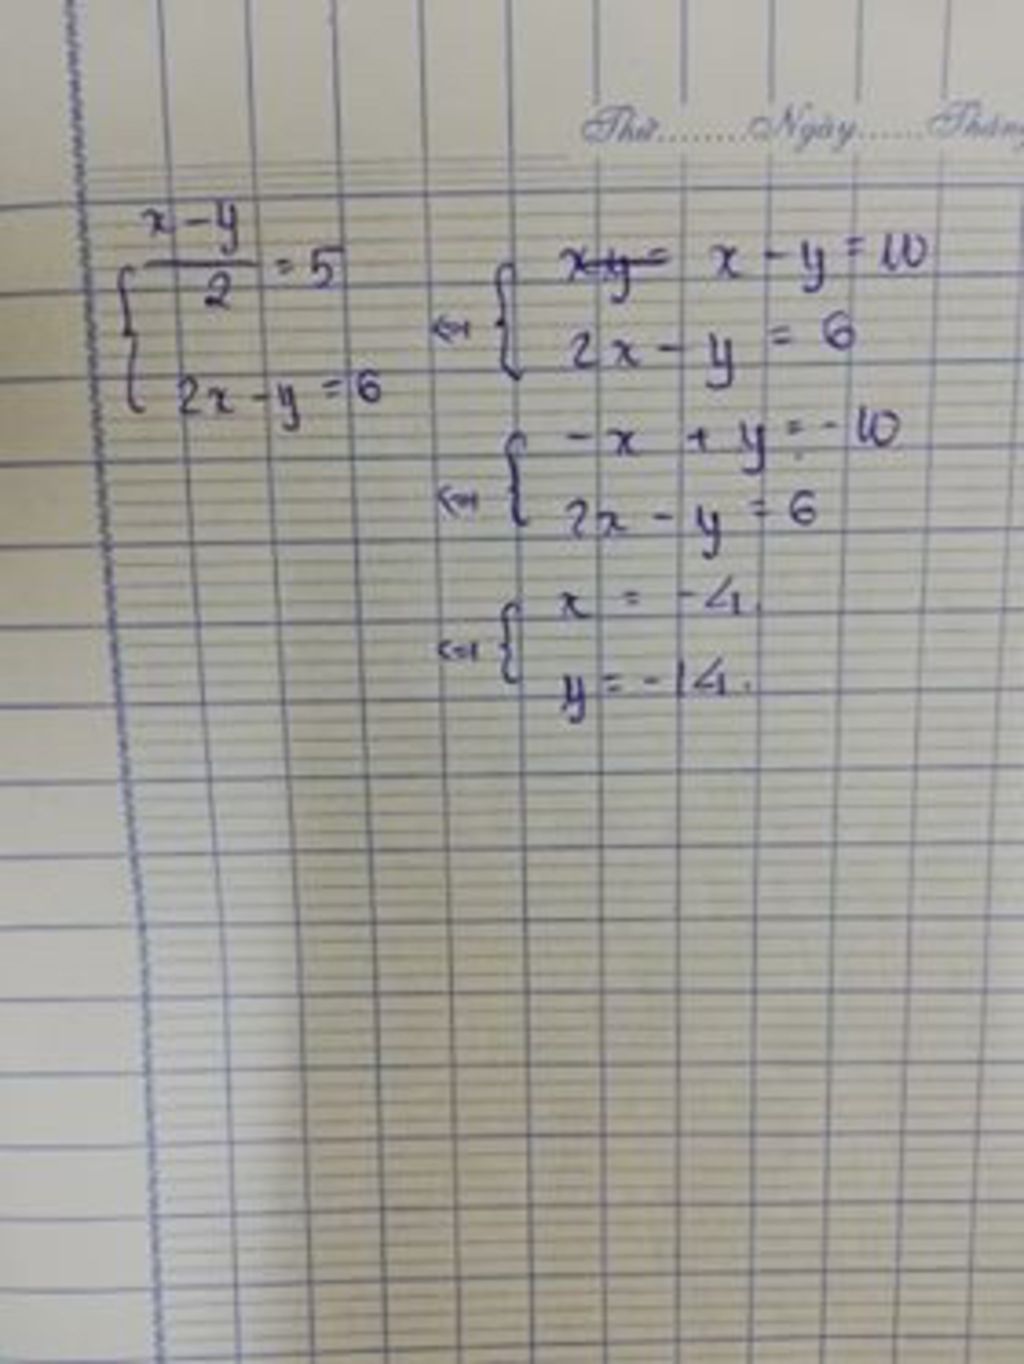 Thứ........Ngày.......Tháng
x - y
/2 = 5
2x - y = 6
<=> { x+y= x - y = 10
2x - y = 6
<=> { - x + y = - 10
2x - y = 6
<=> { x = -4.
y = -14.